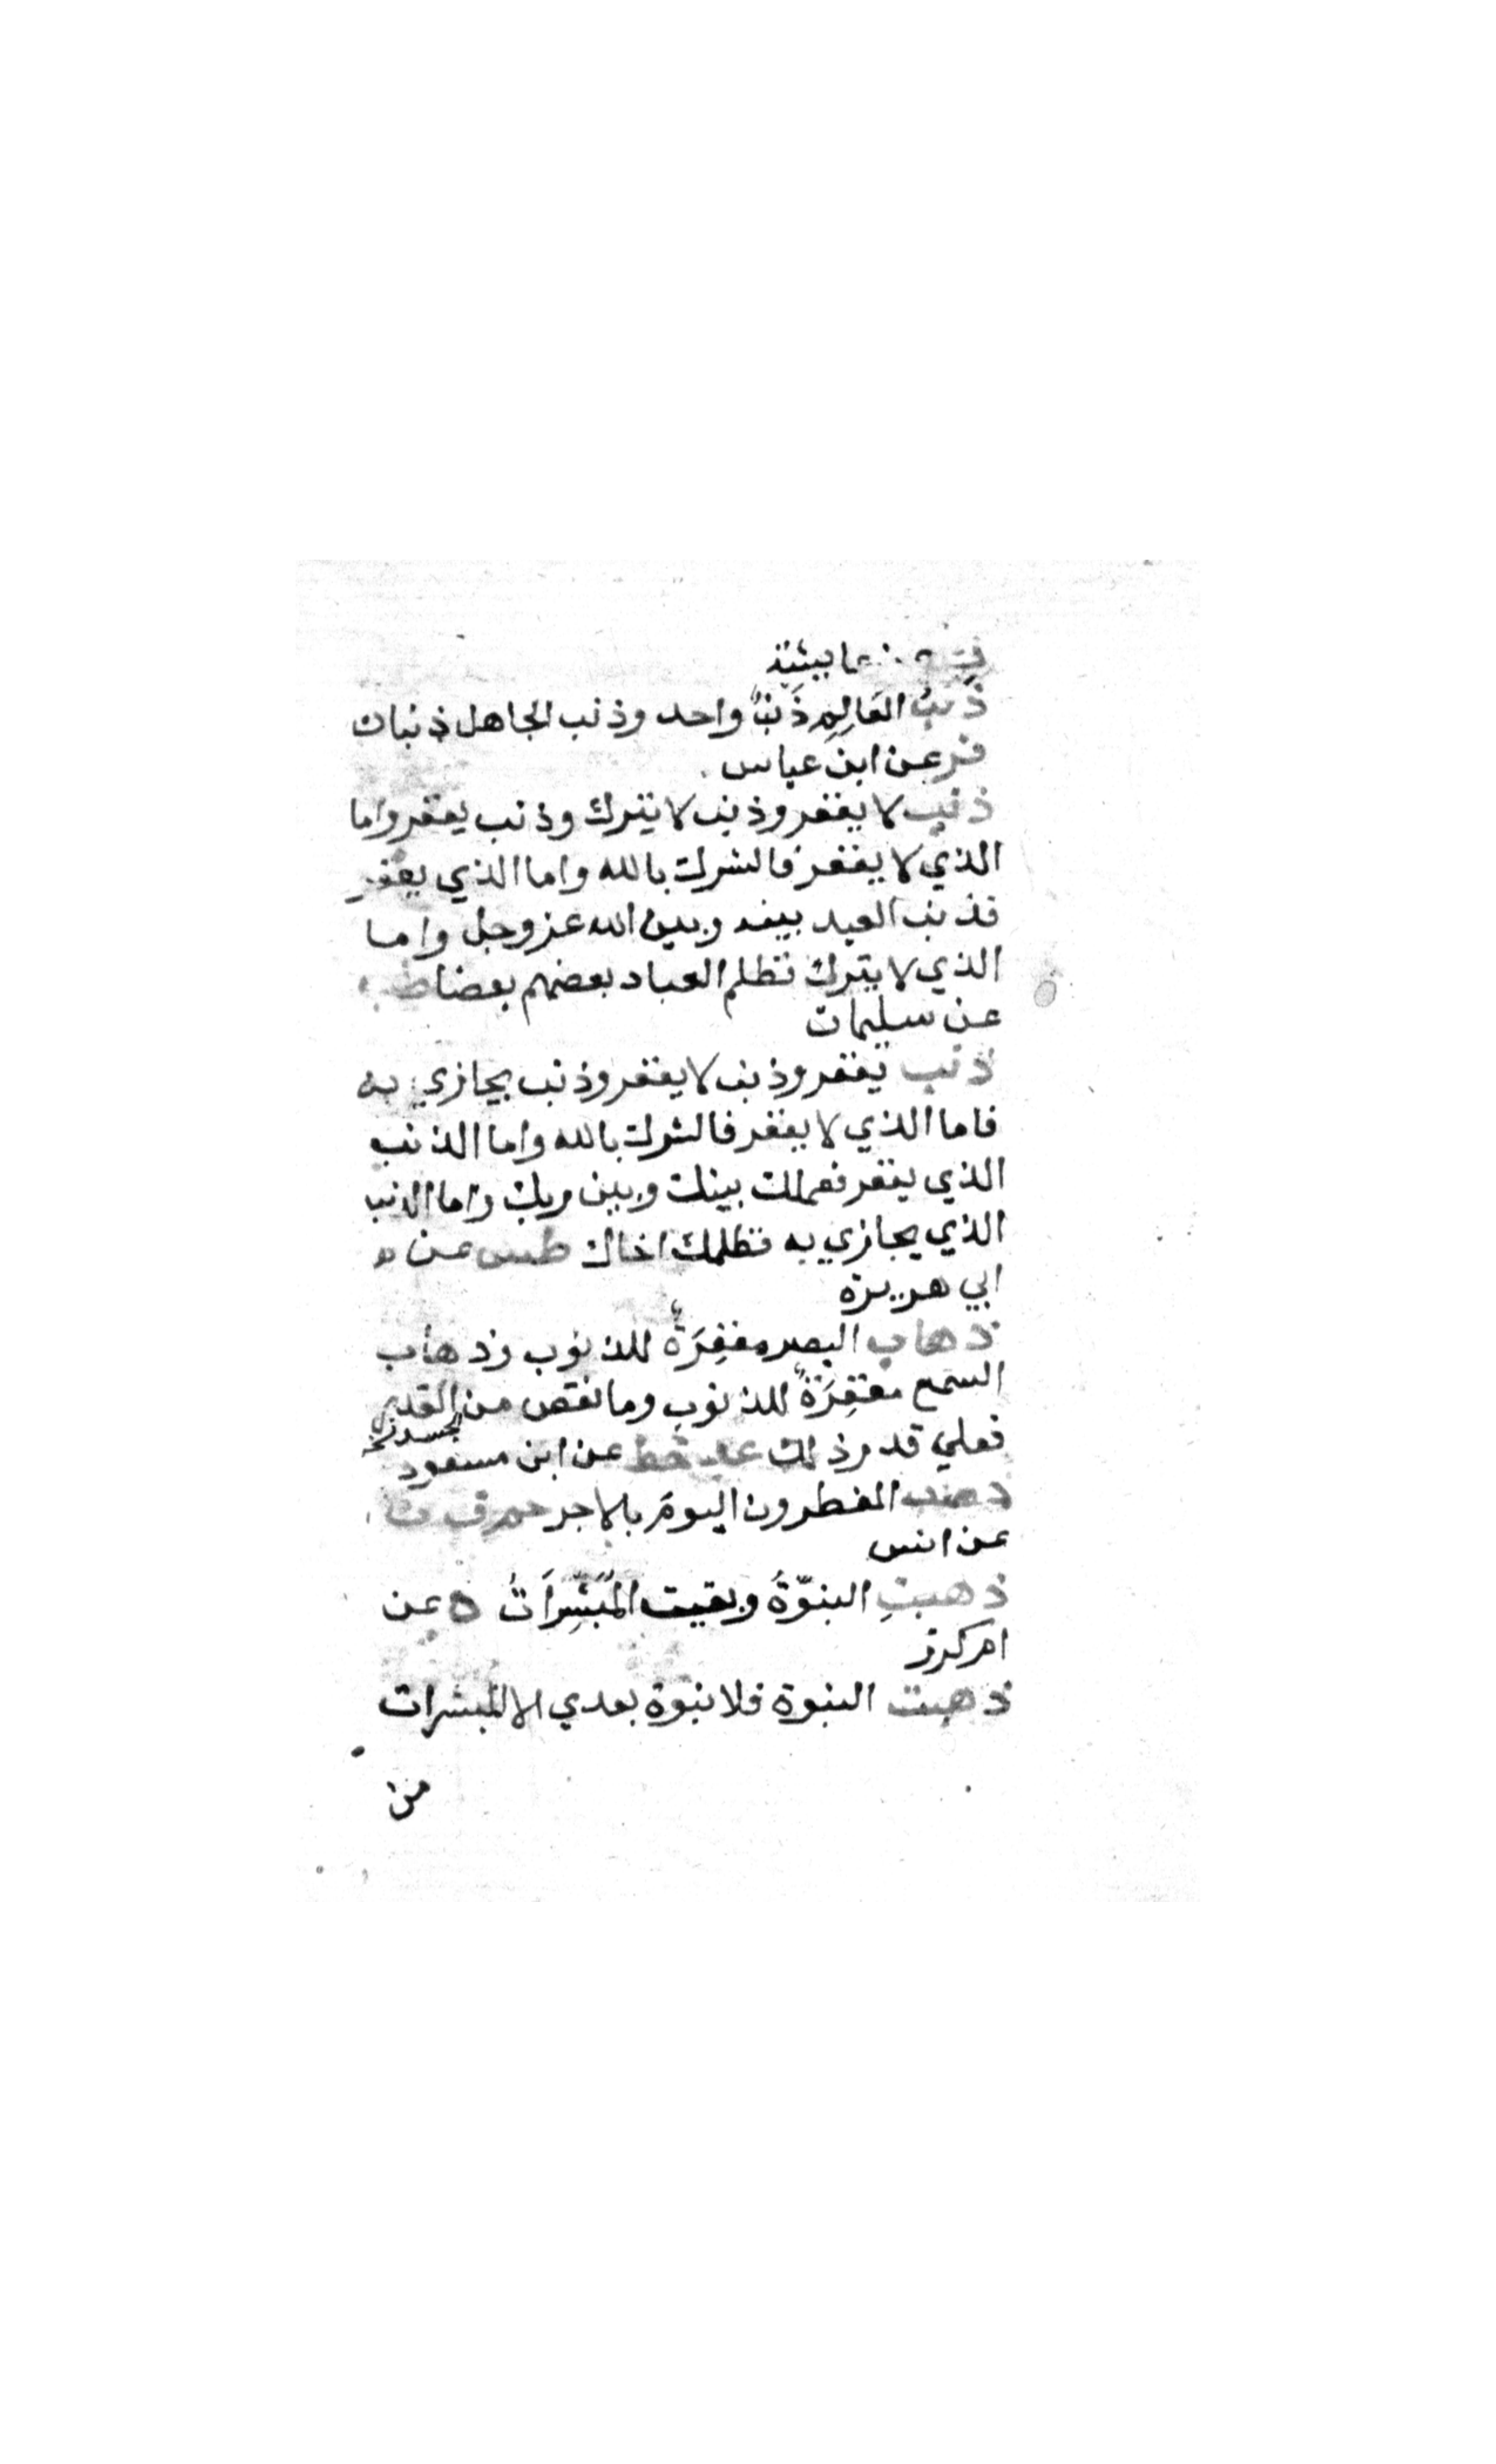 عايشة
ذَنبُ العَالِمِ ذَنبٌ واحد وذنب الجاهل ذنبان
فر عن ابن عباس
ذنب لا يغفر وذنب لا يترك وذنب يغفر واما
الذي لا يغفر فالشرك بالله واما الذي يغفر
فذنب العبد بينه وبين الله عز وجل واما
الذي لا يترك فظلم العباد بعضهم بعضا طب
عن سليمان
ذنب يغفر وذنب لا يغفر وذنب يجازي به
فاما الذي لا يغفر فالشرك بالله واما الذنب
الذي يغفر فعملك بينك وبين ربك واما الذنب
الذي يجازي به فظلمك اخاك طس عن
ابي هريرة
ذهاب البصر مغفِرَةٌ للذنوب وذهاب
السمع مغفِرَةٌ للذنوب وما نقص من
الجسد
فعلي قدر ذلك عد خط عن ابن مسعود
ذهب المفطرون اليوم بالاجر حم ق ن
عن انس
ذهبتِ النبوّةُ وبقيت المُبَشِّرَاتُ ه عن
ام كرز
ذهبت النبوة فلا نبوة بعدي الا المبشرات
من